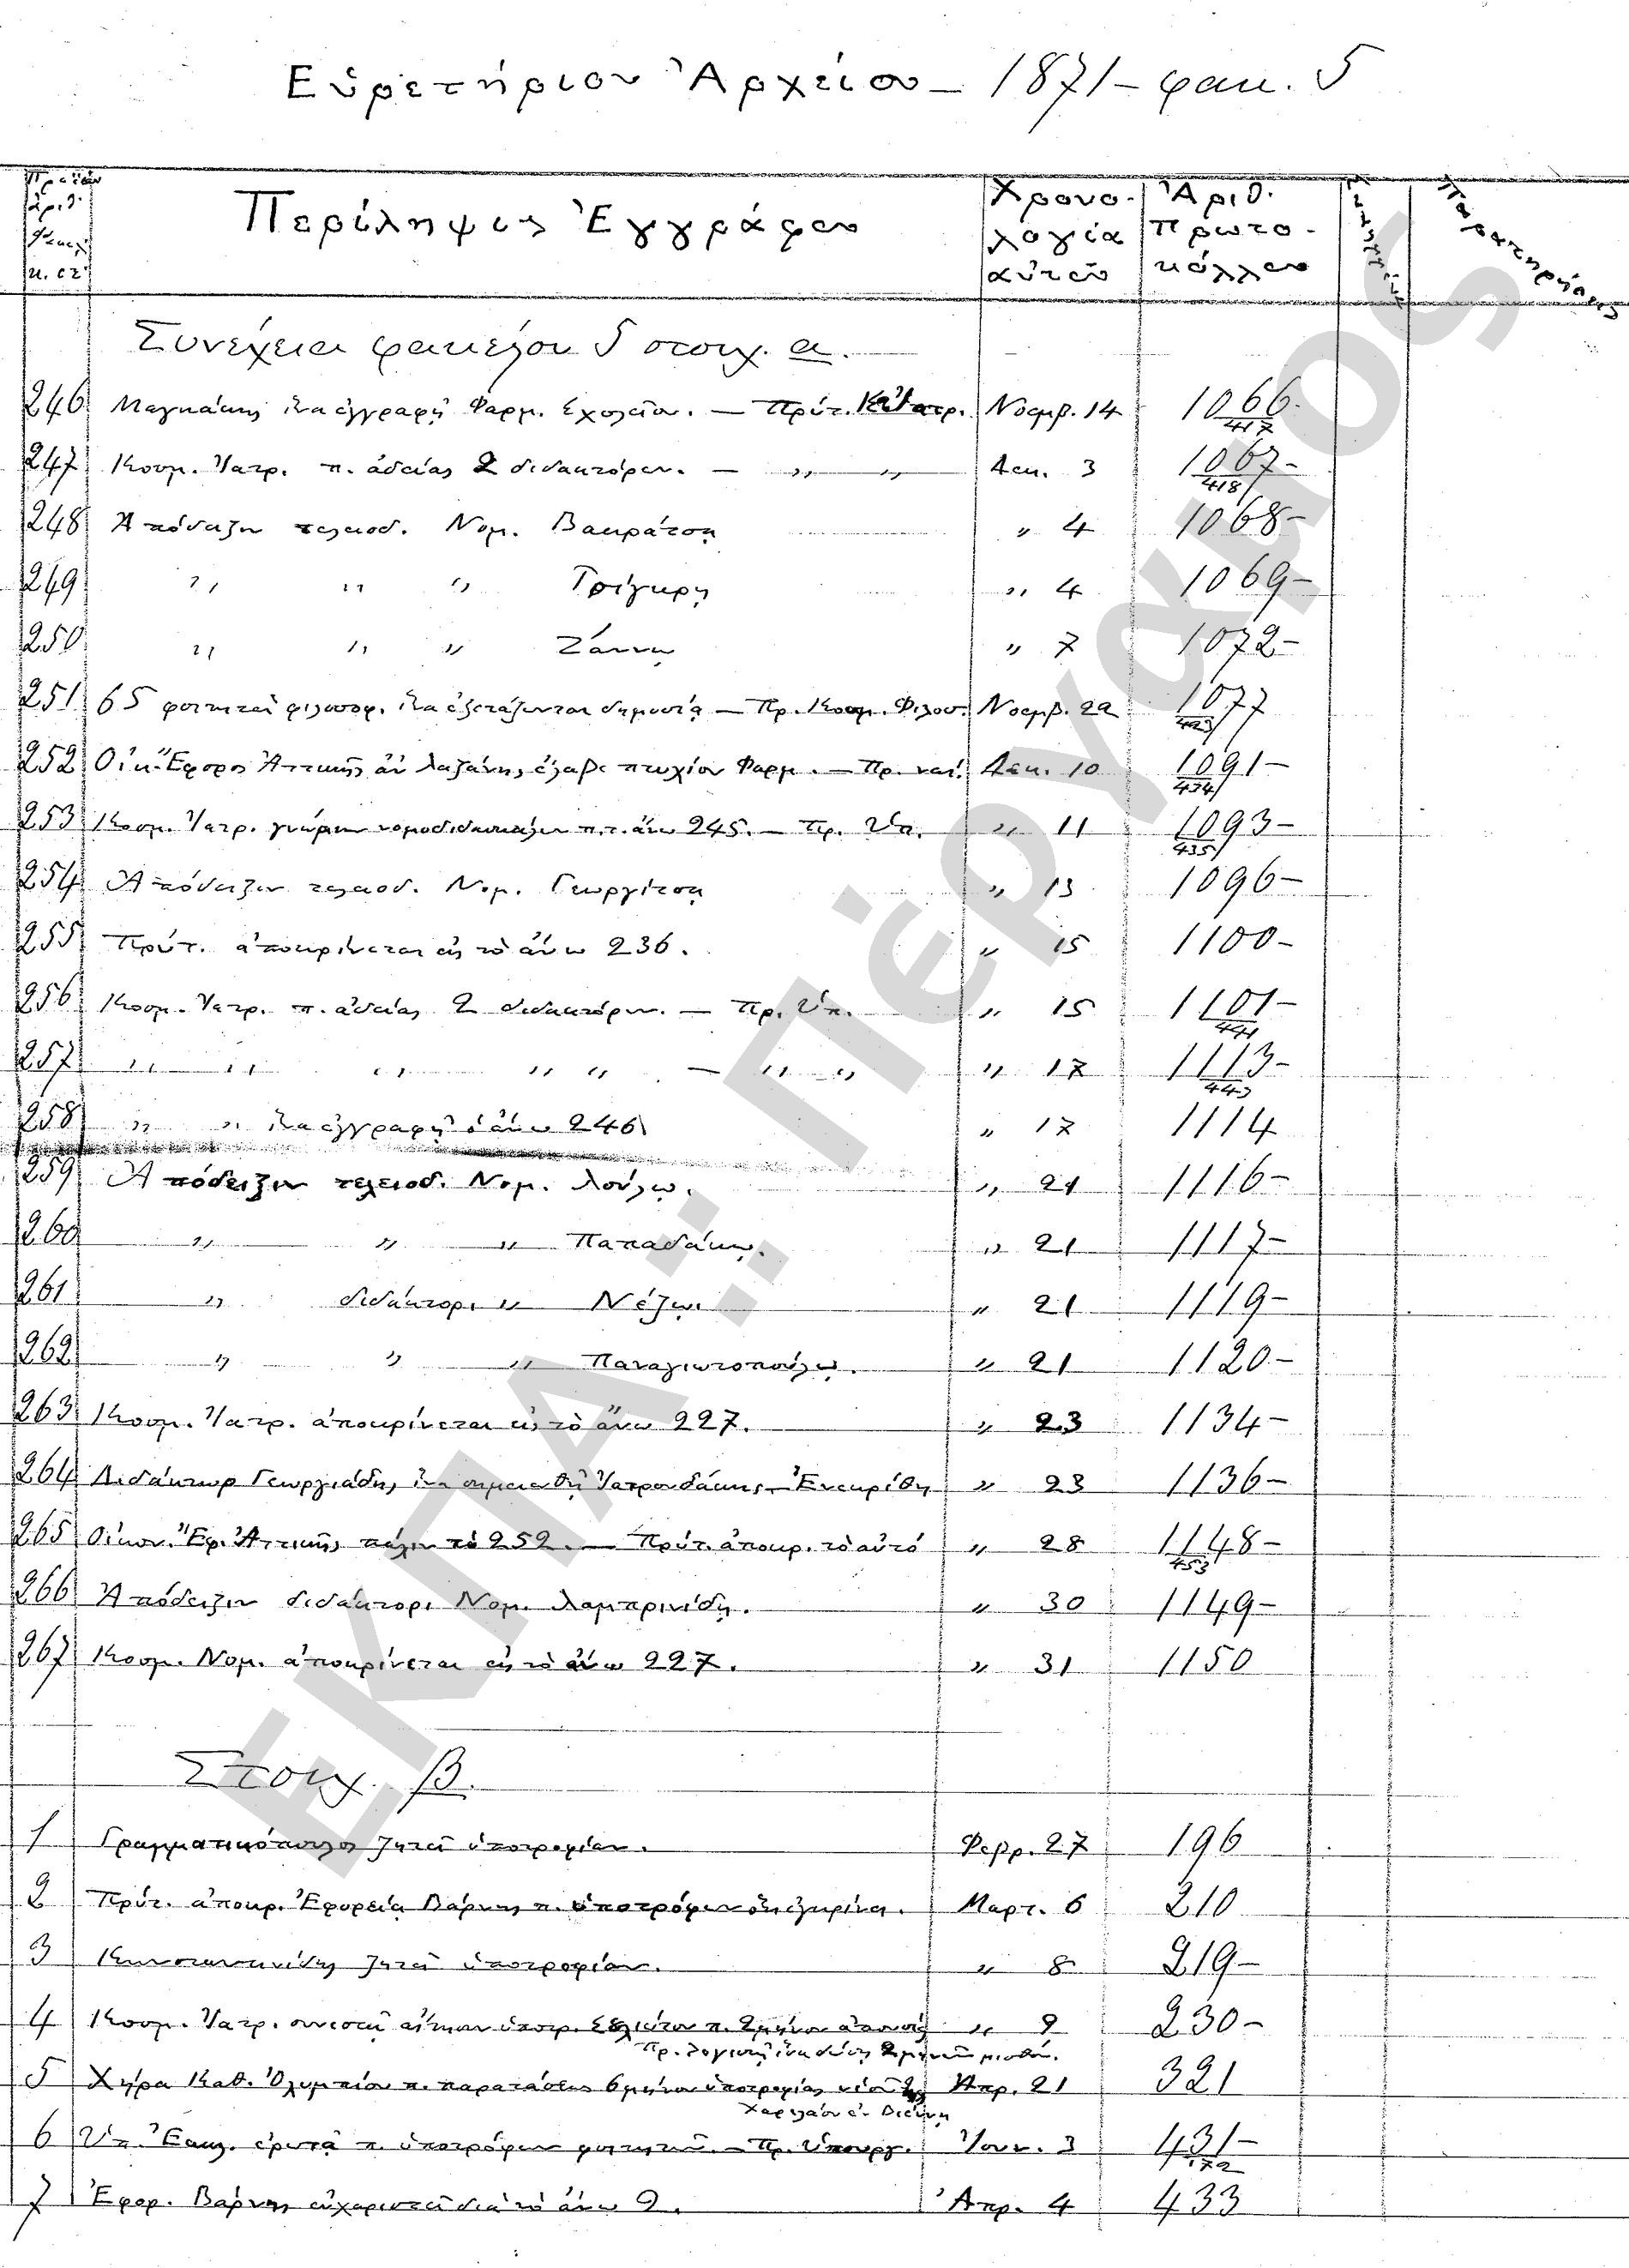 Εὑρετήριον Ἀρχείου – 1871 – φακ. 5
Περίληψις Ἐγγράφου
Χρονολογία αὐτοῦ
Ἀριθ. Πρωτοκόλλου
Παρατηρήσεις
Συνέχεια φακέλου 5 στοιχ. α.
246 ἵνα ἐγγραφῇ Φαρμ. Σχολεῖον. – Πρύτ. Νοεμβ. 14 1066 417
247 Κοσμ. Ἰατρ. π. ἀδείας 2 διδακτόρων. – 〃 〃 Δεκ. 3 1067– 418
248 Ἀπόδειξιν τελειοδ. Νομ. Βακράτση 〃 4 1068–
249 〃 〃 〃 Τσίγκρη 〃 4 1069–
250 〃 〃 〃 Ζάννου 〃 7 1072–
251 65 φοιτηταὶ φιλοσοφ. ἵνα ἐξετάζωνται δημοσίᾳ – Πρ. Κοσμ. Φιλοσ. Νοεμβ. 22 1077
252 Οἰκ. Ἔφορος Ἀττικῆς ἂν Λαζάνης ἔλαβε πτυχίον Φαρμ. – Πρ. ναί. Δεκ. 10 1091– 434
253 Κοσμ. Ἰατρ. γνώμην νομοδιδασκάλων π. τ. ἄνω 245. – Πρ. Ὑπ. 〃 11 1093– 435
254 Ἀπόδειξιν τελειοδ. Νομ. Γεωργίτση 〃 13 1096–
255 Πρύτ. ἀποκρίνεται εἰς τὸ ἄνω 236. 〃 15 1100–
256 Κοσμ. Ἰατρ. π. ἀδείας 2 διδακτόρων. – Πρ. Ὑπ. 〃 15 1101– 441
257 〃 〃 〃 〃 〃 – 〃 〃 〃 17 1113– 443
258 〃 〃 ἵνα ἐγγραφῇ ὁ ἄνω 246 〃 17 1114
259 Ἀπόδειξιν τελειοδ. Νομ. Λούλου. 〃 21 1116–
260 〃 〃 〃 Παπαδάκη. 〃 21 1117–
261 〃 διδάκτορ. 〃 Νέζου 〃 21 1119–
262 〃 〃 〃 Παναγιωτοπούλου. 〃 21 1120–
263 Κοσμ. Ἰατρ. ἀποκρίνεται εἰς τὸ ἄνω 227. 〃 23 1134–
264 Διδάκτωρ Γεωργιάδης ἵνα σημειωθῇ – Ἐνεκρίθη 〃 23 1136–
265 Οἰκον. Ἔφ. Ἀττικῆς πάλιν τὸ 252. – Πρύτ. ἀποκρ. τὸ αὐτό 〃 28 1148– 453
266 Ἀπόδειξιν διδάκτορ. Νομ. Λαμπρινίδη. 〃 30 1149–
267 Κοσμ. Νομ. ἀποκρίνεται εἰς τὸ ἄνω 227. 〃 31 1150
Στοιχ. β.
1 Γραμματικόπουλος ζητεῖ ὑποτροφίαν. Φεβρ. 27 196
2 Πρύτ. ἀποκρ. Ἐφορείᾳ Βάρνης π. ὑποτρόφων Μαρτ. 6 210
3 Κωνσταντινίδης ζητεῖ ὑποτροφίαν. 〃 8 219–
4 Κοσμ. Ἰατρ. συνιστᾷ αἴτησιν ὑποτρ. π. 〃 9 230–
5 Χήρα Καθ. Ὀλυμπίου π. παρατάσεως 6μήνου ὑποτροφίας υἱοῦ της Ἀπρ. 21 321
Χαριλάου ἐν Βιέννῃ
6 Ὑπ. Ἐκκλ. ἐρωτᾷ π. ὑποτρόφων – Πρ. Ὑπουργ. Ἰουν. 3 431– 172
7 Ἐφορ. Βάρνης εὐχαριστεῖ διὰ τὸ ἄνω 2. Ἀπρ. 4 433
ΕΚΠΑ:: Πέργαμος